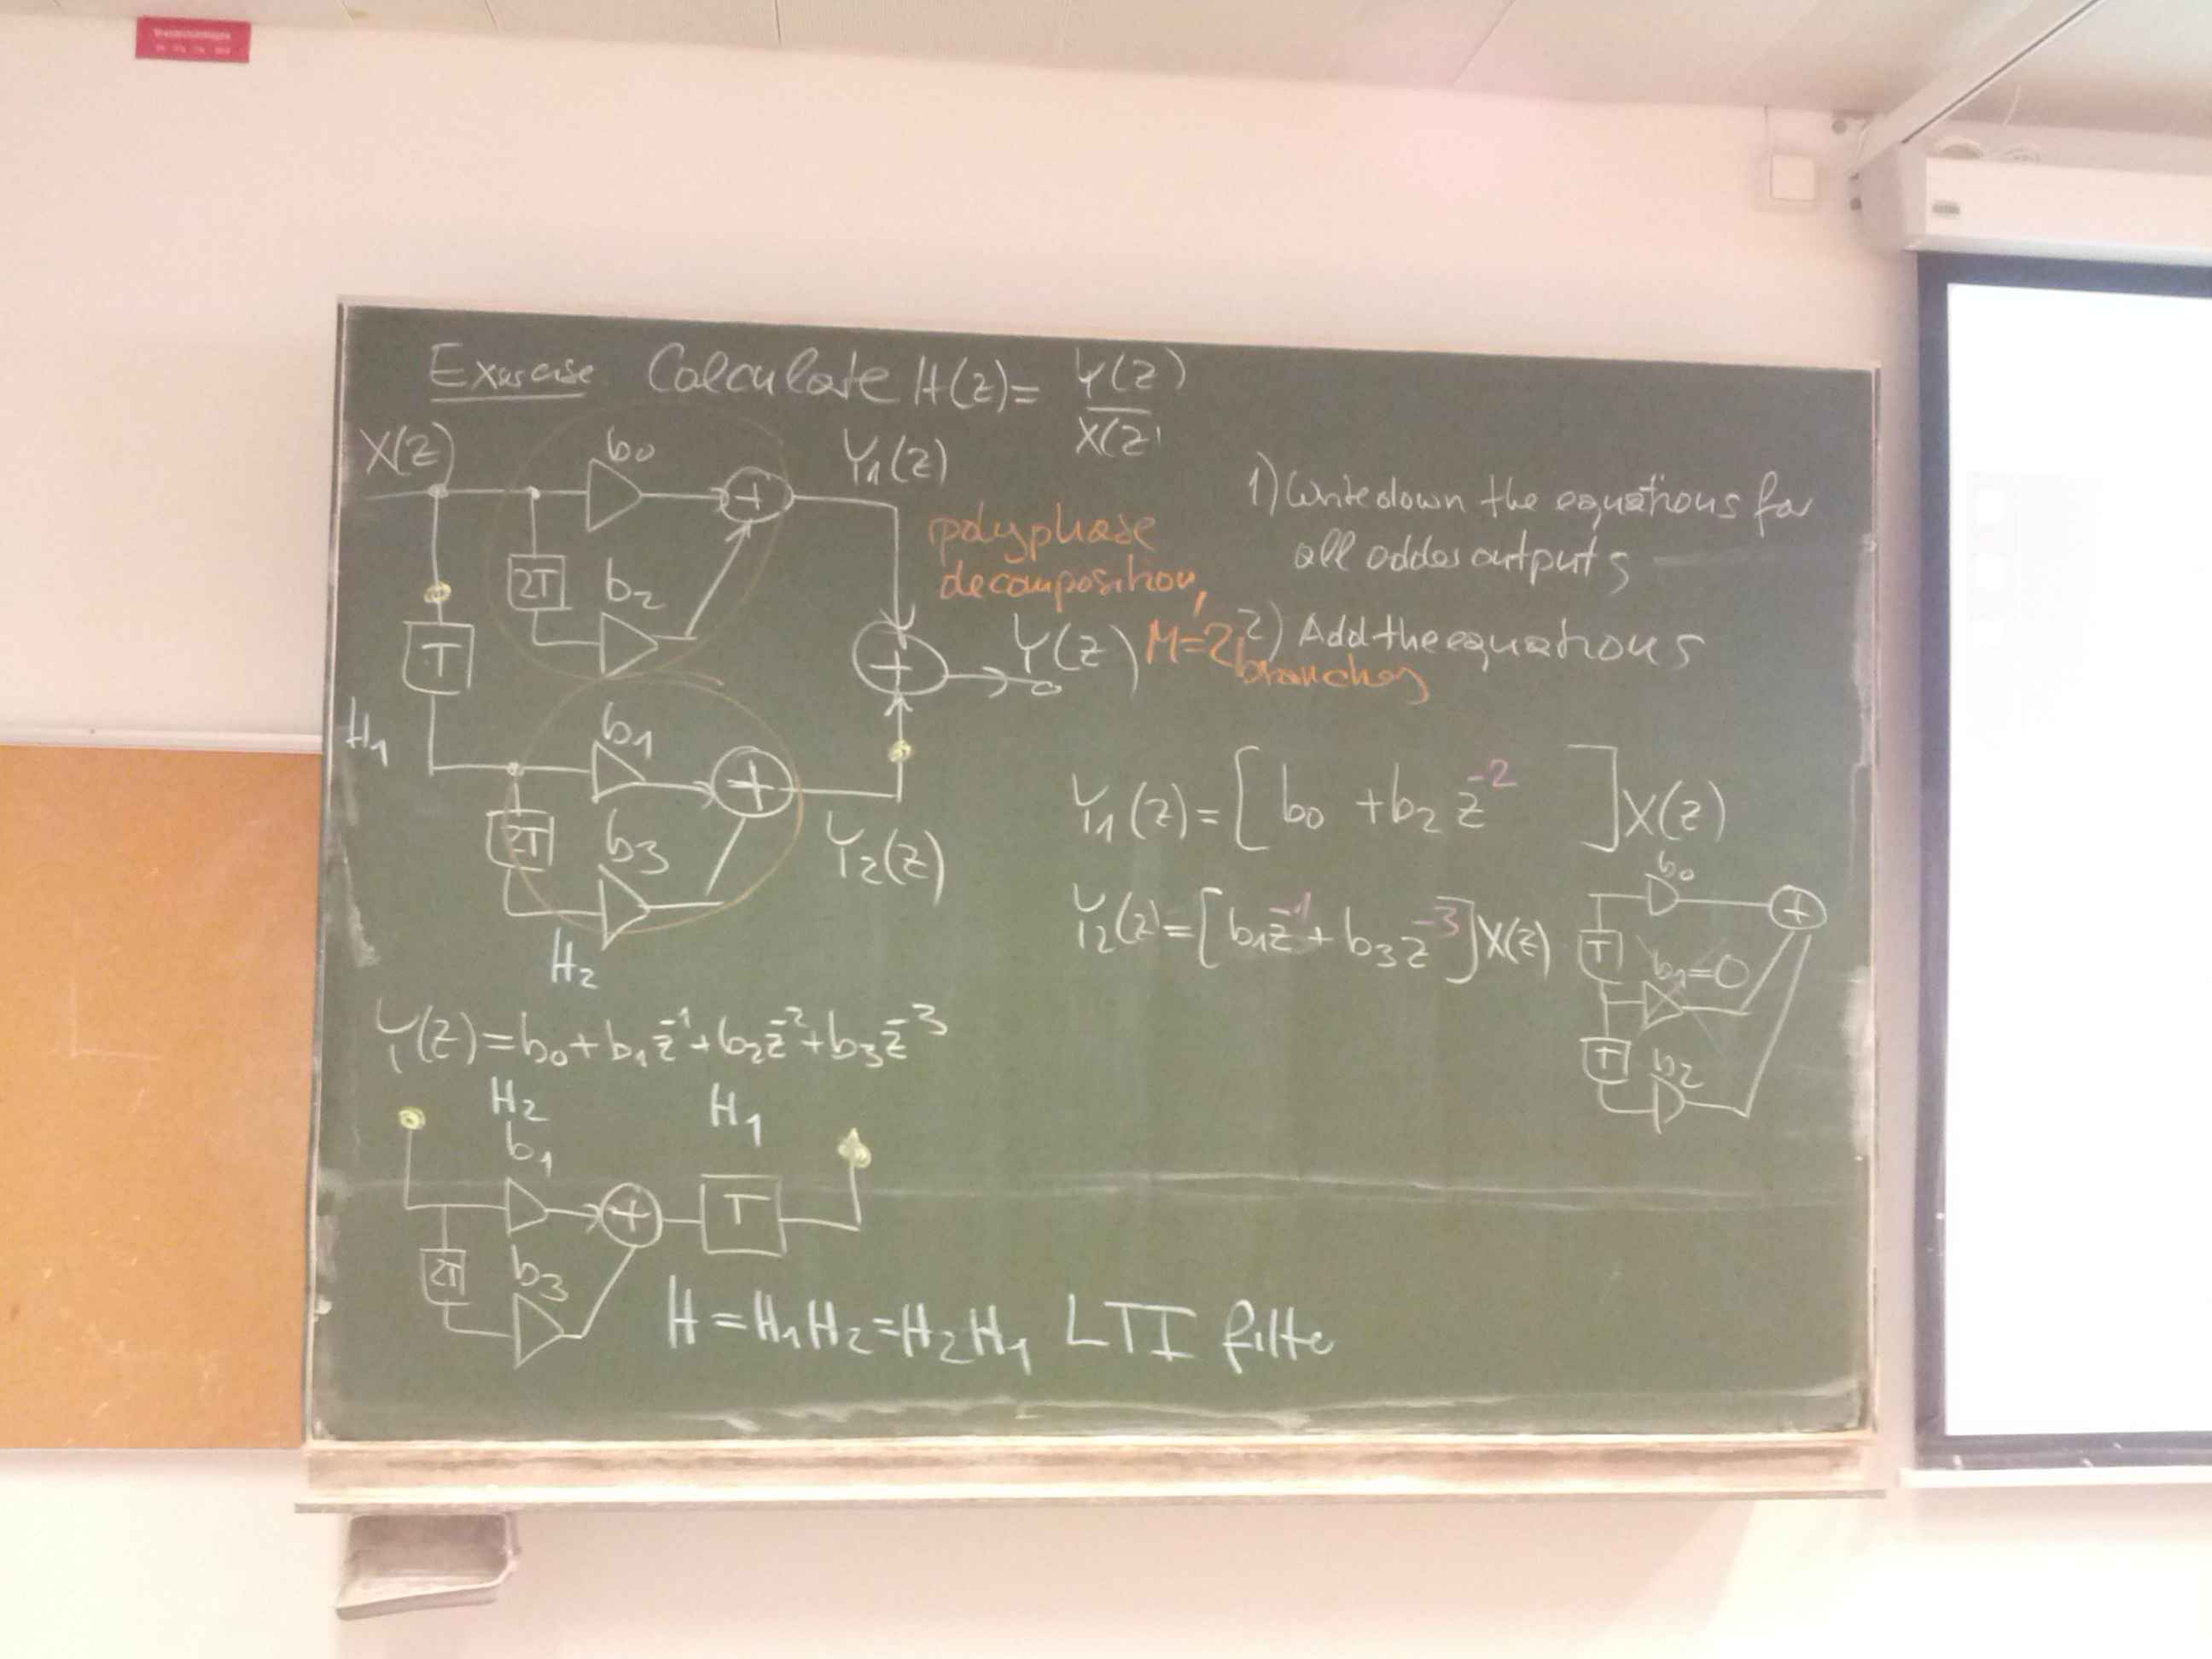 Exercise. Calculate H(z)= Y(z)/X(z)
X(z)
b0
+
Y1(z)
2T
b2
T
+
Y(z)
H1
b1
+
2T
b3
Y2(z)
H2
polyphase
decomposition,
M=2
branches
1) Write down the equations for
all adder outputs
2) Add the equations
Y1(z)=[b0 +b2 z^-2 ]X(z)
Y2(z)=[b1z^-1+b3z^-3]X(z)
b0
+
T
b1=0
T
b2
Y(z)=b0+b1z^-1+b2z^-2+b3z^-3
H2
H1
b1
+
T
2T
b3
H=H1H2=H2H1 LTI filte